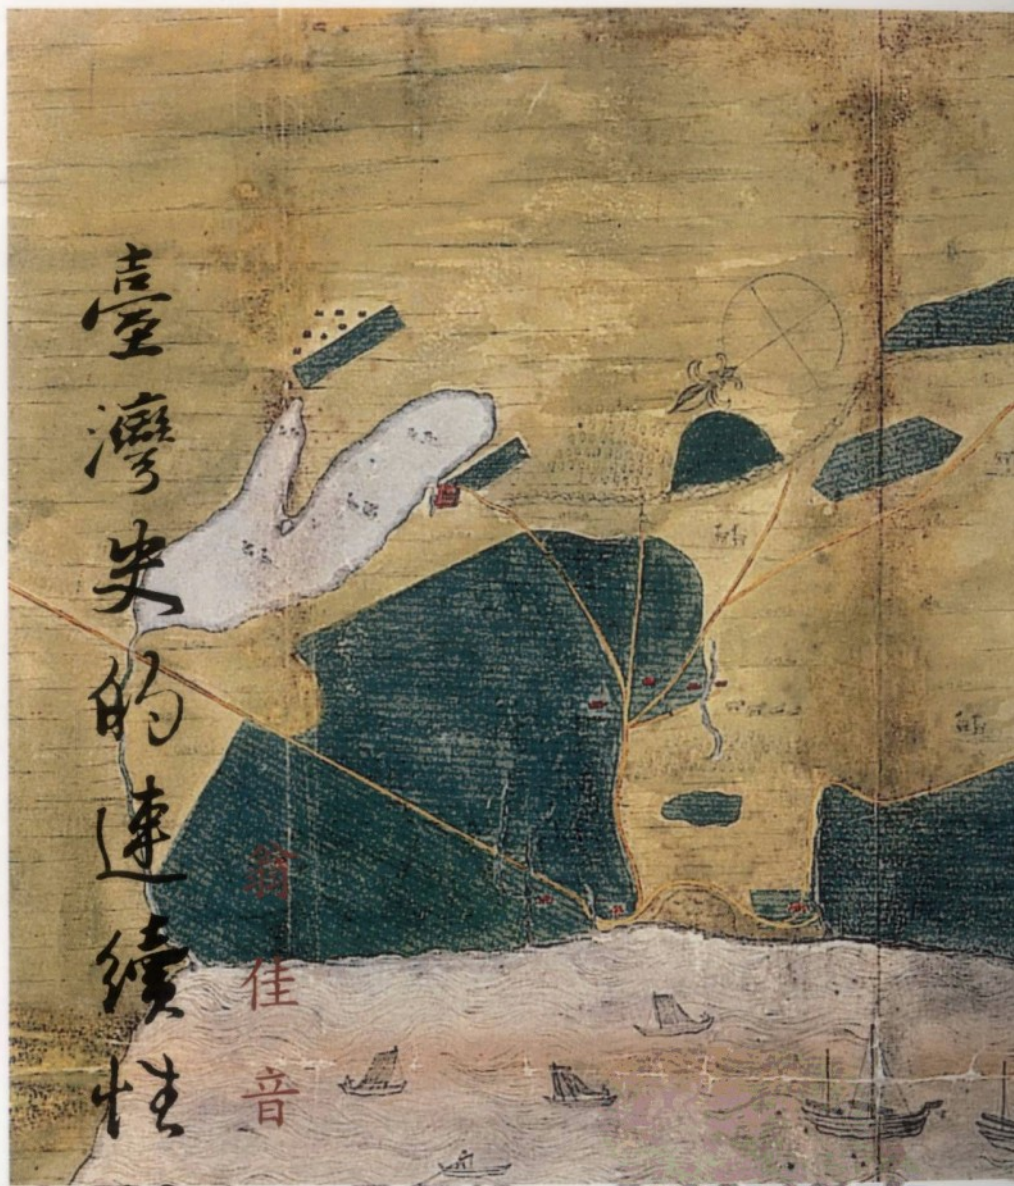 臺灣史的連續性
翁佳音